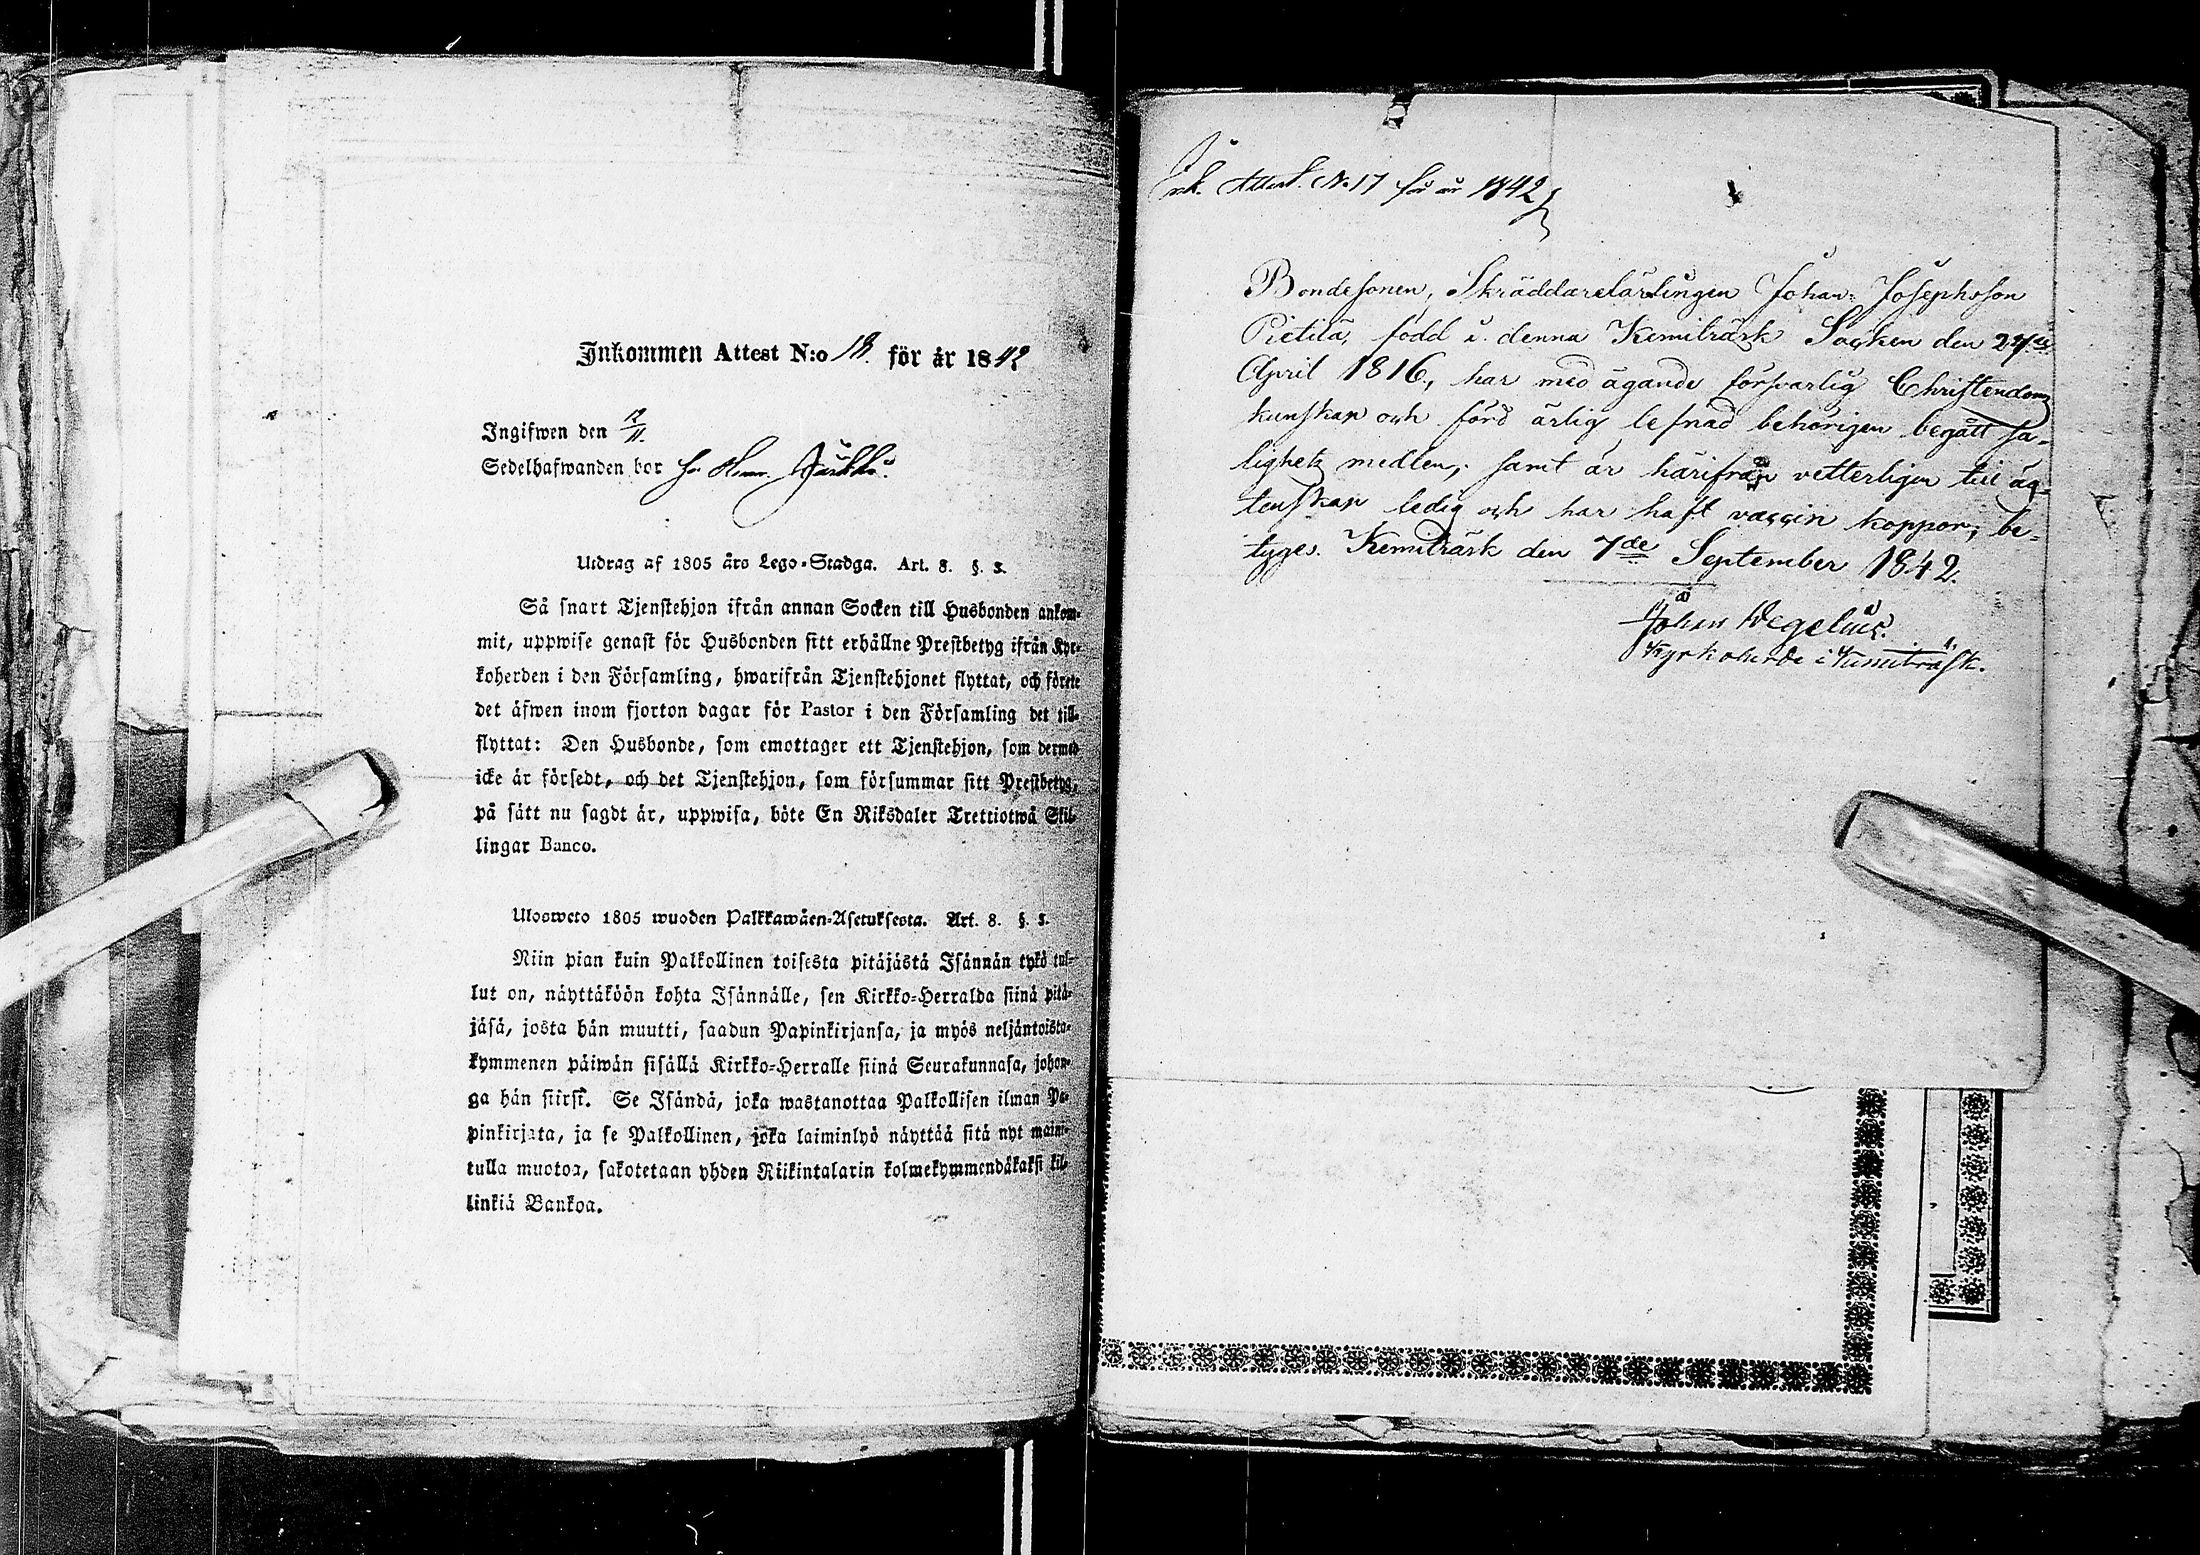 Inkommen Attest N:o 18. för år 1842
Ingifwen den 12/11.
Sedelhafwanden bor
Utdrag af 1805 års Lego-Stadga. Art. 8. §. 3.
Så snart Tjenstehjon ifrån annan Socken till Husbonden ankom-
mit, uppwise genast för Husbonden sitt erhållne Prestbetyg ifrån Kyr-
koherden i den Församling, hwarifrån Tjenstehjonet flyttat, och förete
det äfwen inom fjorton dagar för Pastor i den Församling det till-
flyttat: Den Husbonde, som emottager ett Tjenstehjon, som dermed
icke är försedt, och det Tjenstehjon, som försummar sitt Prestbetyg,
på sätt nu sagdt är, uppwisa, böte En Riksdaler Trettiotwå Skil-
lingar Banco.
Ulosweto 1805 wuoden Palkkawäen-Asetuksesta. Art. 8. §. 3.
Niin pian kuin Palkollinen toisesta pitäjästä Isännän tykö tul-
lut on, näyttäköön kohta Isännälle, sen Kirkko-Herralda siinä pitä-
jäsä, josta hän muutti, saadun Papinkirjansa, ja myös neljäntoista-
kymmenen päiwän sisällä Kirkko-Herralle siinä Seurakunnasa, johon-
ga hän siirsi. Se Isändä, joka wastanottaa Palkollisen ilman Pa-
pinkirjata, ja se Palkollinen, joka laiminlyö näyttää sitä nyt maini-
tulla muotoa, sakotetaan yhden Riikintalarin kolmekymmendäkaksi kil-
linkiä Bankoa.
Ink. Attest. No 17 för år 1842
Bondesonen, Skräddarelärlingen Johan Josephsson
Pietilä, född i denna Kemiträsk Socken den 24de
April 1816, har med ägande försvarlig Christendoms
kunskap och förd ärlig lefnad behörigen begått sa-
lighets medlen, samt är härifrån vetterligen till äq-
tenskap ledig och har haft vaccin koppor, be-
tyges. Kemiträsk den 7de September 1842.
Johan Wegelius.
Kyrkoherde i Kemiträsk.